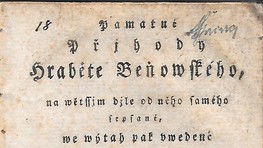 18
Pamatné
Přjhody
Hraběte Beňowského,
na wětssjm djle od něho samého
sepsané,
we weytah pak uwedené